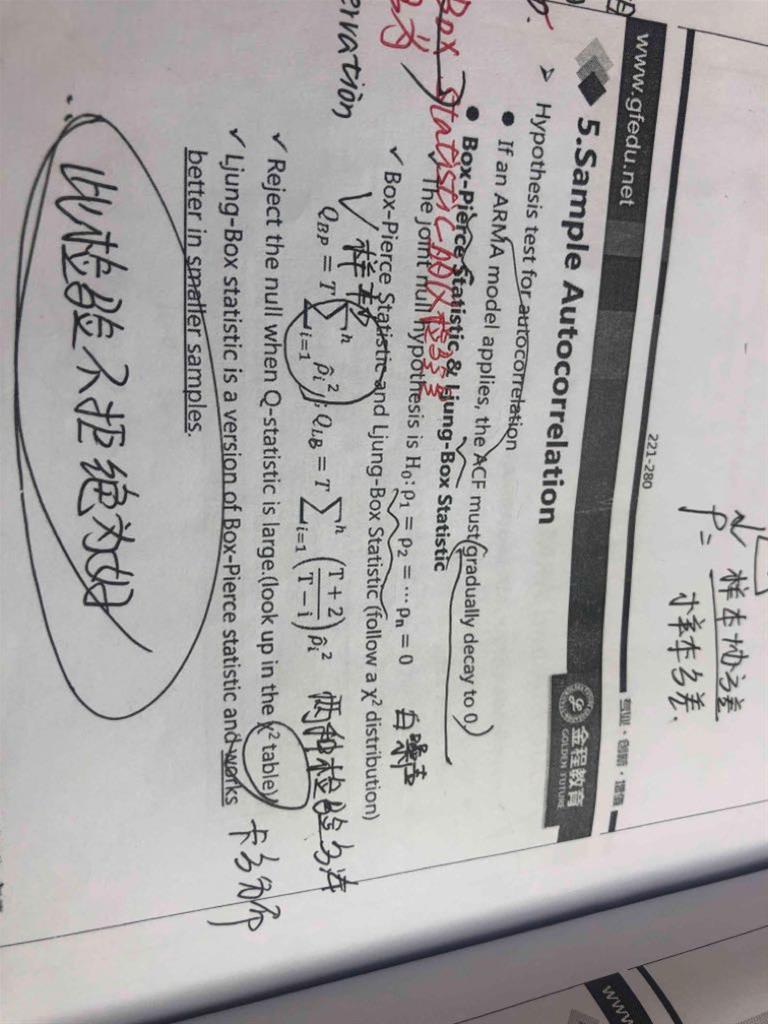 样本协方差
ρ = 样本方差
221-280
www.gfedu.net
专业·创新·增值
金程教育
GOLDEN FUTURE
5.Sample Autocorrelation
➢ Hypothesis test for autocorrelation
● If an ARMA model applies, the ACF must gradually decay to 0.
● Box-Pierce Statistic & Ljung-Box Statistic
✓ The joint null hypothesis is H₀: ρ₁ = ρ₂ = ⋯ ρₙ = 0 白噪声
Box Statistic
✓ Box-Pierce Statistic and Ljung-Box Statistic (follow a χ² distribution)
样本
Q_BP = T ∑ʰᵢ₌₁ ρ̂ᵢ²; Q_LB = T ∑ʰᵢ₌₁ ((T + 2)/(T − i)) ρ̂ᵢ² 两种检验方法
ervation
✓ Reject the null when Q-statistic is large.(look up in the χ² table) 卡方分布
✓ Ljung-Box statistic is a version of Box-Pierce statistic and works
better in smaller samples.
此检验不拒绝为好
www